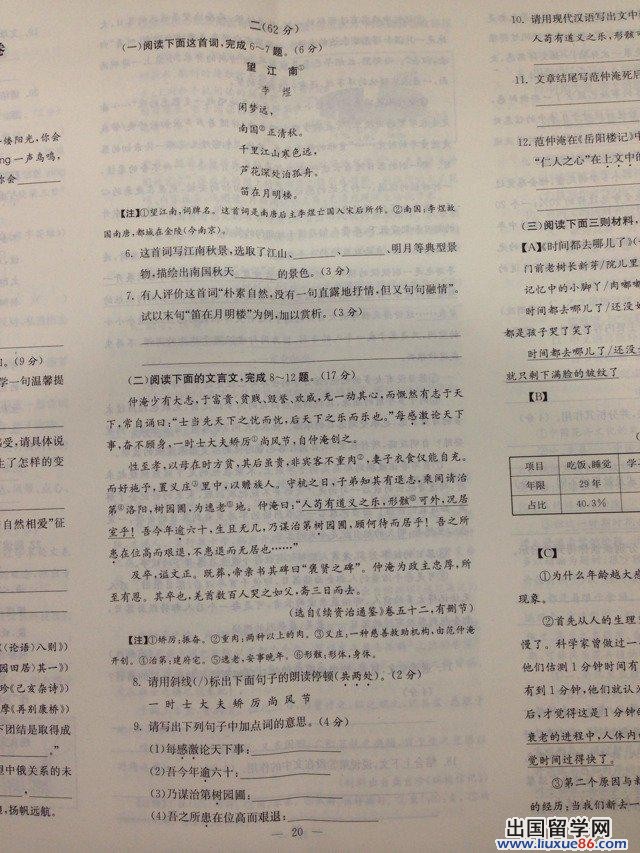 卷
一缕阳光,你会
一声鸟鸣,
你会
。(9分)
学一句温馨提
感受,请具体说
生了怎样的变
自然相爱”征
《论语》八则》)
园田居》其一》)
珍《己亥杂诗》)
摩《再别康桥》)
下团结是取得成
。”
望中俄关系的未
,扬帆远航。
二(62分)
(一)阅读下面这首词,完成6~7题。(6分)
望江南①
李煜
闲梦远,
南国②正清秋。
千里江山寒色远,
芦花深处泊孤舟。
笛在月明楼。
【注】①望江南,词牌名。这首词是南唐后主李煜亡国入宋后所作。②南国:李煜故
国南唐,都城在金陵(今南京)。
6. 这首词写江南秋景,选取了江山、________、________、明月等典型景
物,描绘出南国秋天________的景色。(3分)
7. 有人评价这首词“朴素自然,没有一句直露地抒情,但又句句融情”。
试以末句“笛在月明楼”为例,加以赏析。(3分)
(二)阅读下面的文言文,完成8~12题。(17分)
仲淹少有大志,于富贵、贫贱、毁誉、欢戚,无一动其心,而慨然有志于天
下,常自诵曰:“士当先天下之忧而忧,后天下之乐而乐也。”每感激论天下
事,奋不顾身,一时士大夫矫厉①尚风节,自仲淹创之。
性至孝,以母在时方贫,其后虽贵,非宾客不重肉②,妻子衣食仅能自充。
而好施予,置义庄③里中,以赡族人。守杭之日,子弟知其有退志,乘间请治
第④洛阳,树园圃,为逸老⑤地。仲淹曰:“人苟有道义之乐,形骸⑥可外,况居
室乎!吾今年逾六十,生且无几,乃谋治第树园圃,顾何待而居乎!吾之所
患在位高而艰退,不患退而无居也……”
及卒,谥文正。既葬,帝亲书其碑曰“褒贤之碑”。仲淹为政主忠厚,所
至有恩。其卒也,羌首数百人哭之如父,斋三日而去。
(选自《续资治通鉴》卷五十二,有删节)
【注】①矫厉:振奋。②重肉:两种以上的肉。③义庄:一种慈善救助机构,由范仲淹
开创。④治第:建府宅。⑤逸老:安事晚年。⑥形骸:形体,身体。
8. 请用斜线(/)标出下面句子的朗读停顿(共两处)。(2分)
一时士大夫矫厉尚风节
9. 请写出下列句子中加点词的意思。(4分)
(1)每感激论天下事:
(2)吾今年逾六十:
(3)乃谋治第树园圃:
(4)吾之所患在位高而艰退:
— 20 —
10. 请用现代汉语写出文中
人苟有道义之乐,形
11. 文章结尾写范仲淹死后
12. 范仲淹在《岳阳楼记》中
“仁人之心”在上文中的
(三)阅读下面三则材料,
【A】《时间都去哪儿了》(
门前老树长新芽/院儿里
记忆中的小脚丫/肉嘟嘟
时间都去哪儿了/还没好
都是孩子哭了笑了
时间都去哪儿了/还没
就只剩下满脸的皱纹了
【B】
项目 吃饭、睡觉 学
年限 29年
占比 40.3%
【C】
①为什么年龄越大感
现象。
②首先从人的生理
慢了。科学家曾做过一
他们估测1分钟时间有
有到1分钟,他们就认为
后,才觉得这是1分钟
衰老的进程,人体内的
觉时间过得快了。
③第二个原因与新
的经历;当我们新去一
出国留学网
www.liuxue86.com